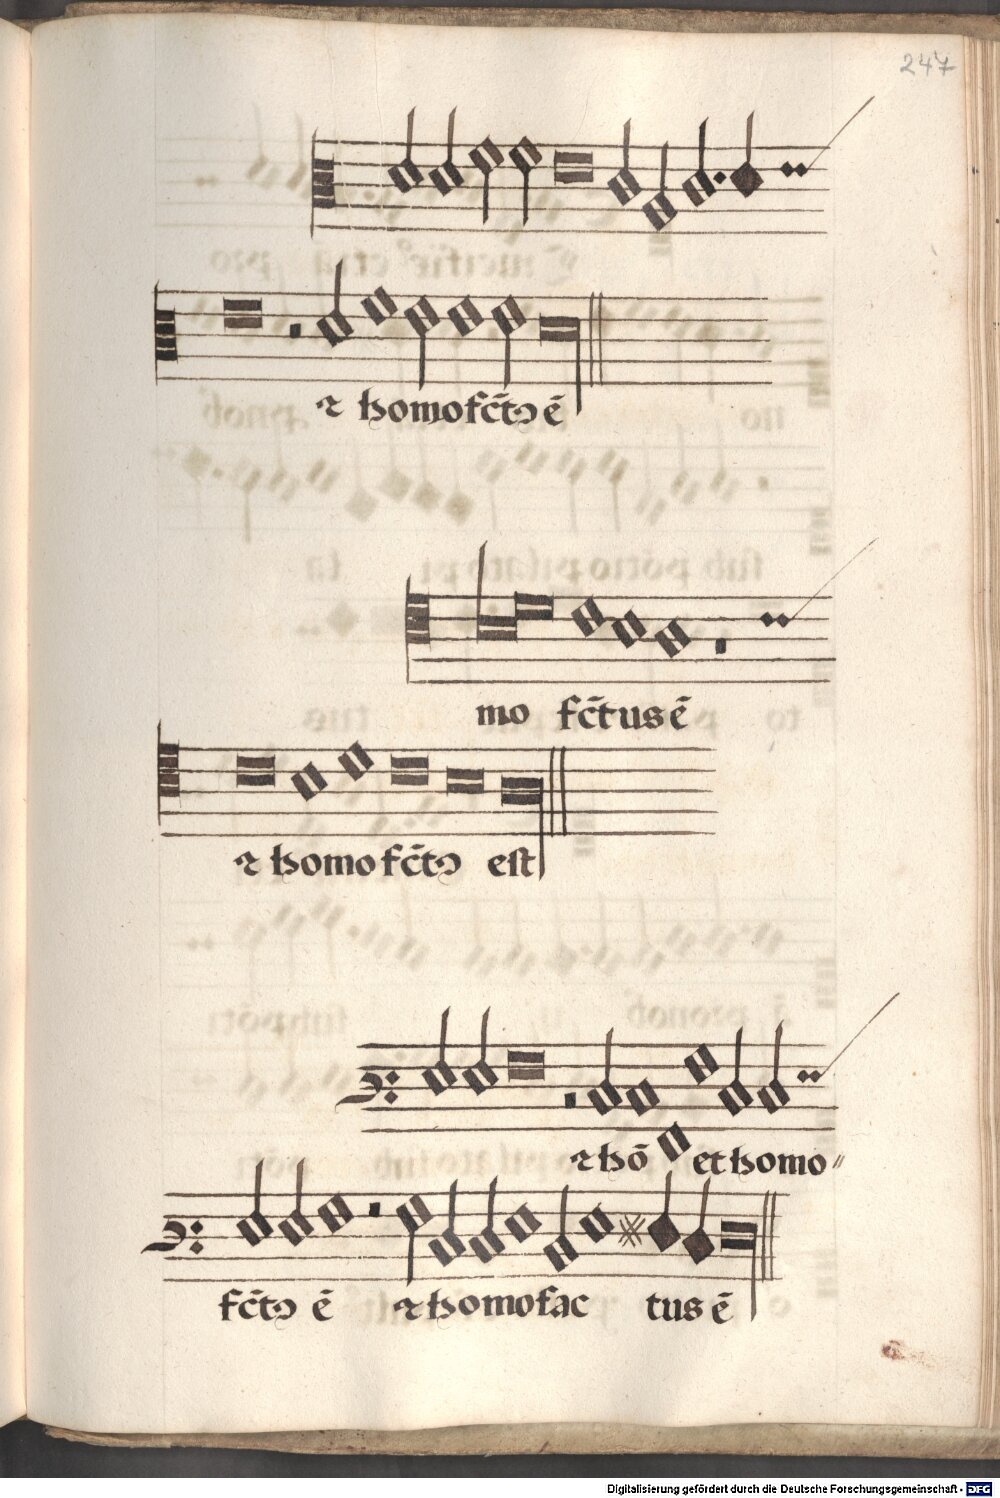 247
⁊ homo fc̄tꝯ ē
mo fc̄tus ē
⁊ homo fc̄tꝯ est
⁊ hō et homo〃
fc̄tꝯ ē ⁊ homo fac tus ē
Digitalisierung gefördert durch die Deutsche Forschungsgemeinschaft - DFG